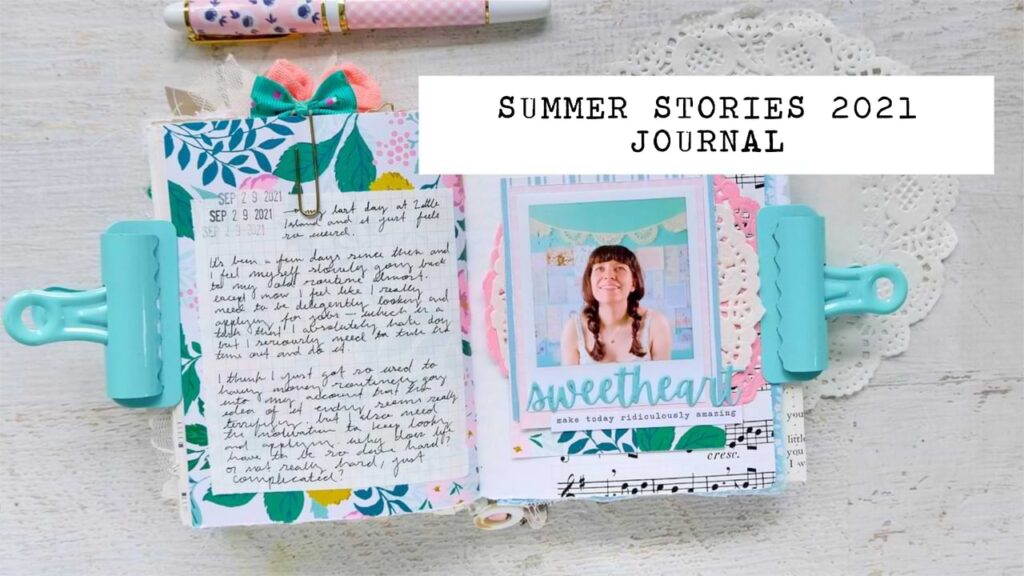 SUMMER STORIES 2021
JOURNAL
SEP 29 2021
SEP 29 2021
SEP 29 2021
→ my last day at Little
Island and it just feels
so weird.
It's been a few days since then and
I feel myself slowly going back
to my old routine almost.
except now I feel like I really
need to be diligently looking and
applying for jobs — which is a
task that I absolutely hate doing
but I seriously need to take the
time out and do it.
I think I just got so used to
having money routinely going
into my account that the
idea of it ending seems really
terrifying but I also need
the motivation to keep looking
and applying. why does life
have to be so damn hard?
or not really hard, just
complicated?
sweetheart
make today ridiculously amazing
cresc.
little
I w